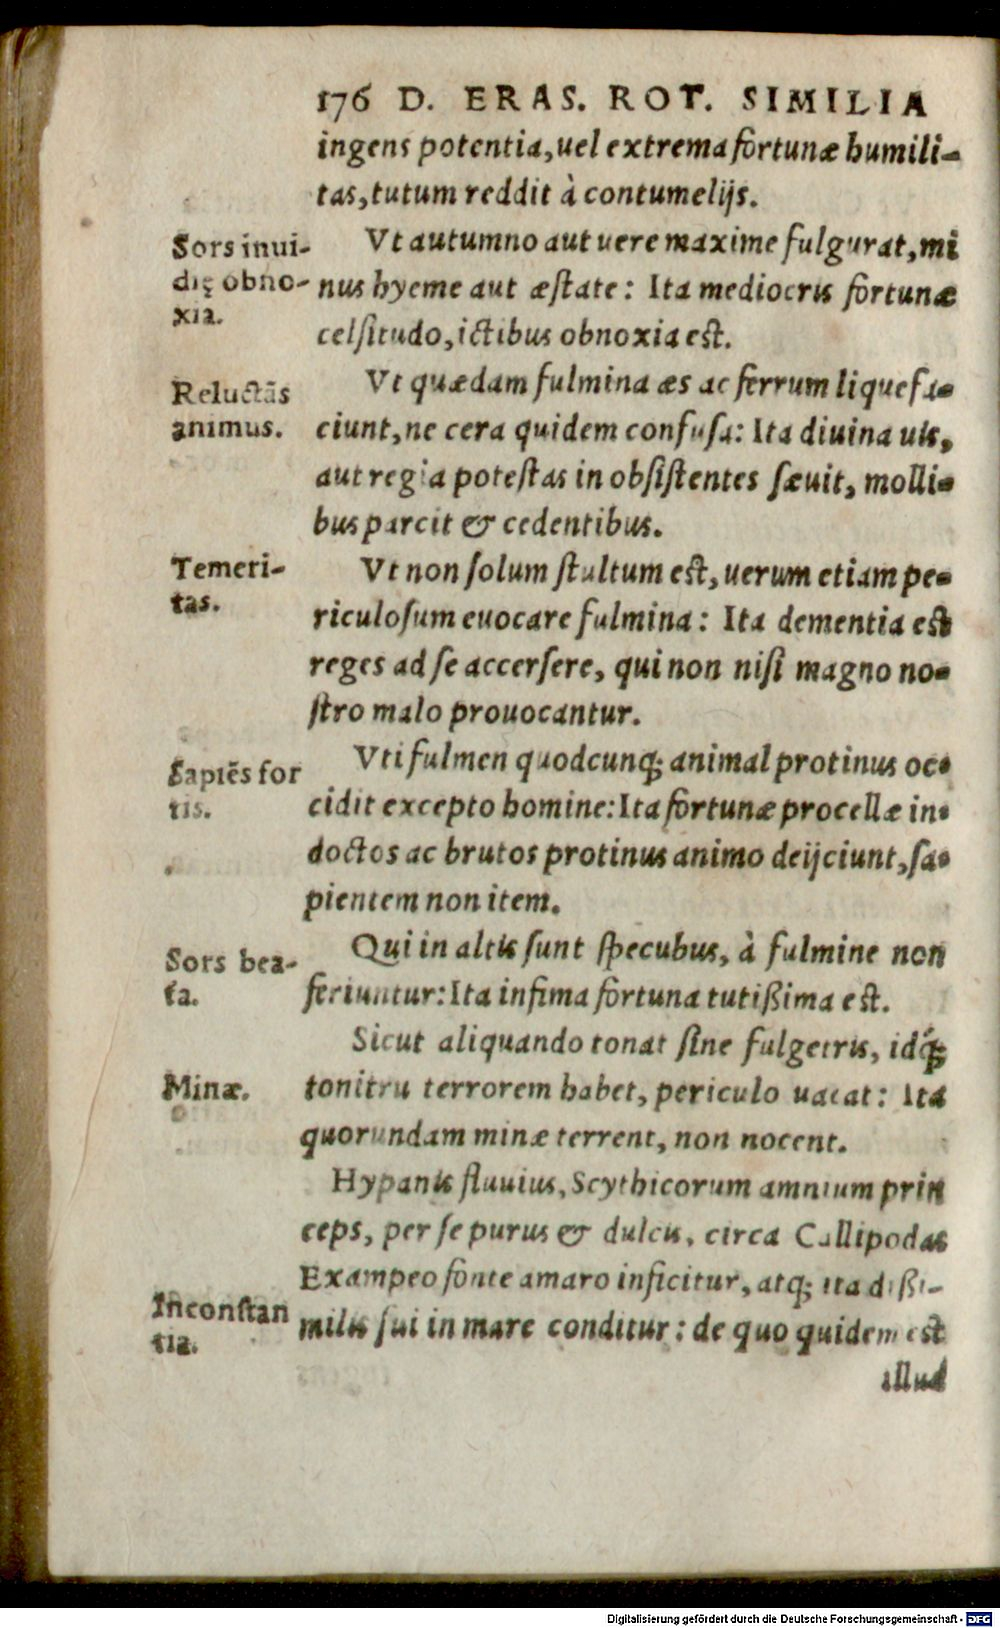 176 D. ERAS. ROT. SIMILIA
ingens potentia, uel extrema fortunæ humili-
tas, tutum reddit à contumelijs.
Sors inui-
dię obno-
xia.
Vt autumno aut uere maxime fulgurat, mi
nus hyeme aut æstate: Ita mediocris fortunæ
celsitudo, ictibus obnoxia est.
Reluctãs
animus.
Vt quædam fulmina æs ac ferrum liquefa-
ciunt, ne cera quidem confusa: Ita diuina uis,
aut regia potestas in obsistentes sæuit, molli-
bus parcit & cedentibus.
Temeri-
tas.
Vt non solum stultum est, uerum etiam pe-
riculosum euocare fulmina: Ita dementia est
reges ad se accersere, qui non nisi magno no-
stro malo prouocantur.
Sapiẽs for
tis.
Vti fulmen quodcunq; animal protinus oc-
cidit excepto homine: Ita fortunæ procellæ in-
doctos ac brutos protinus animo deijciunt, sa-
pientem non item.
Sors bea-
ta.
Qui in altis sunt specubus, à fulmine non
feriuntur: Ita infima fortuna tutißima est.
Minæ.
Sicut aliquando tonat sine fulgetris, idq́;
tonitru terrorem habet, periculo uacat: Ita
quorundam minæ terrent, non nocent.
Hypanis fluuius, Scythicorum amnium prin
ceps, per se purus & dulcis, circa Callipodas
Exampeo fonte amaro inficitur, atq; ita dißi-
Inconstan
tia.
milis sui in mare conditur: de quo quidem est
illud
Digitalisierung gefördert durch die Deutsche Forschungsgemeinschaft - DFG